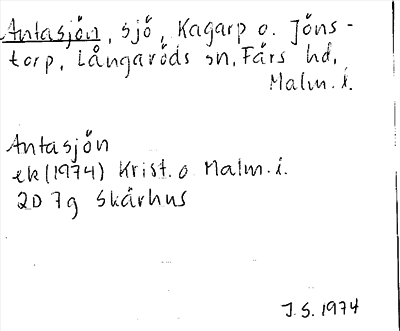 Antasjön, sjö, Kagarp o. Jöns-
torp, Långaröds sn, Färs hd,
Malm. l.
Antasjön
ek (1974) Krist. o Malm. l.
2D 7g Skärhus
J.S. 1974